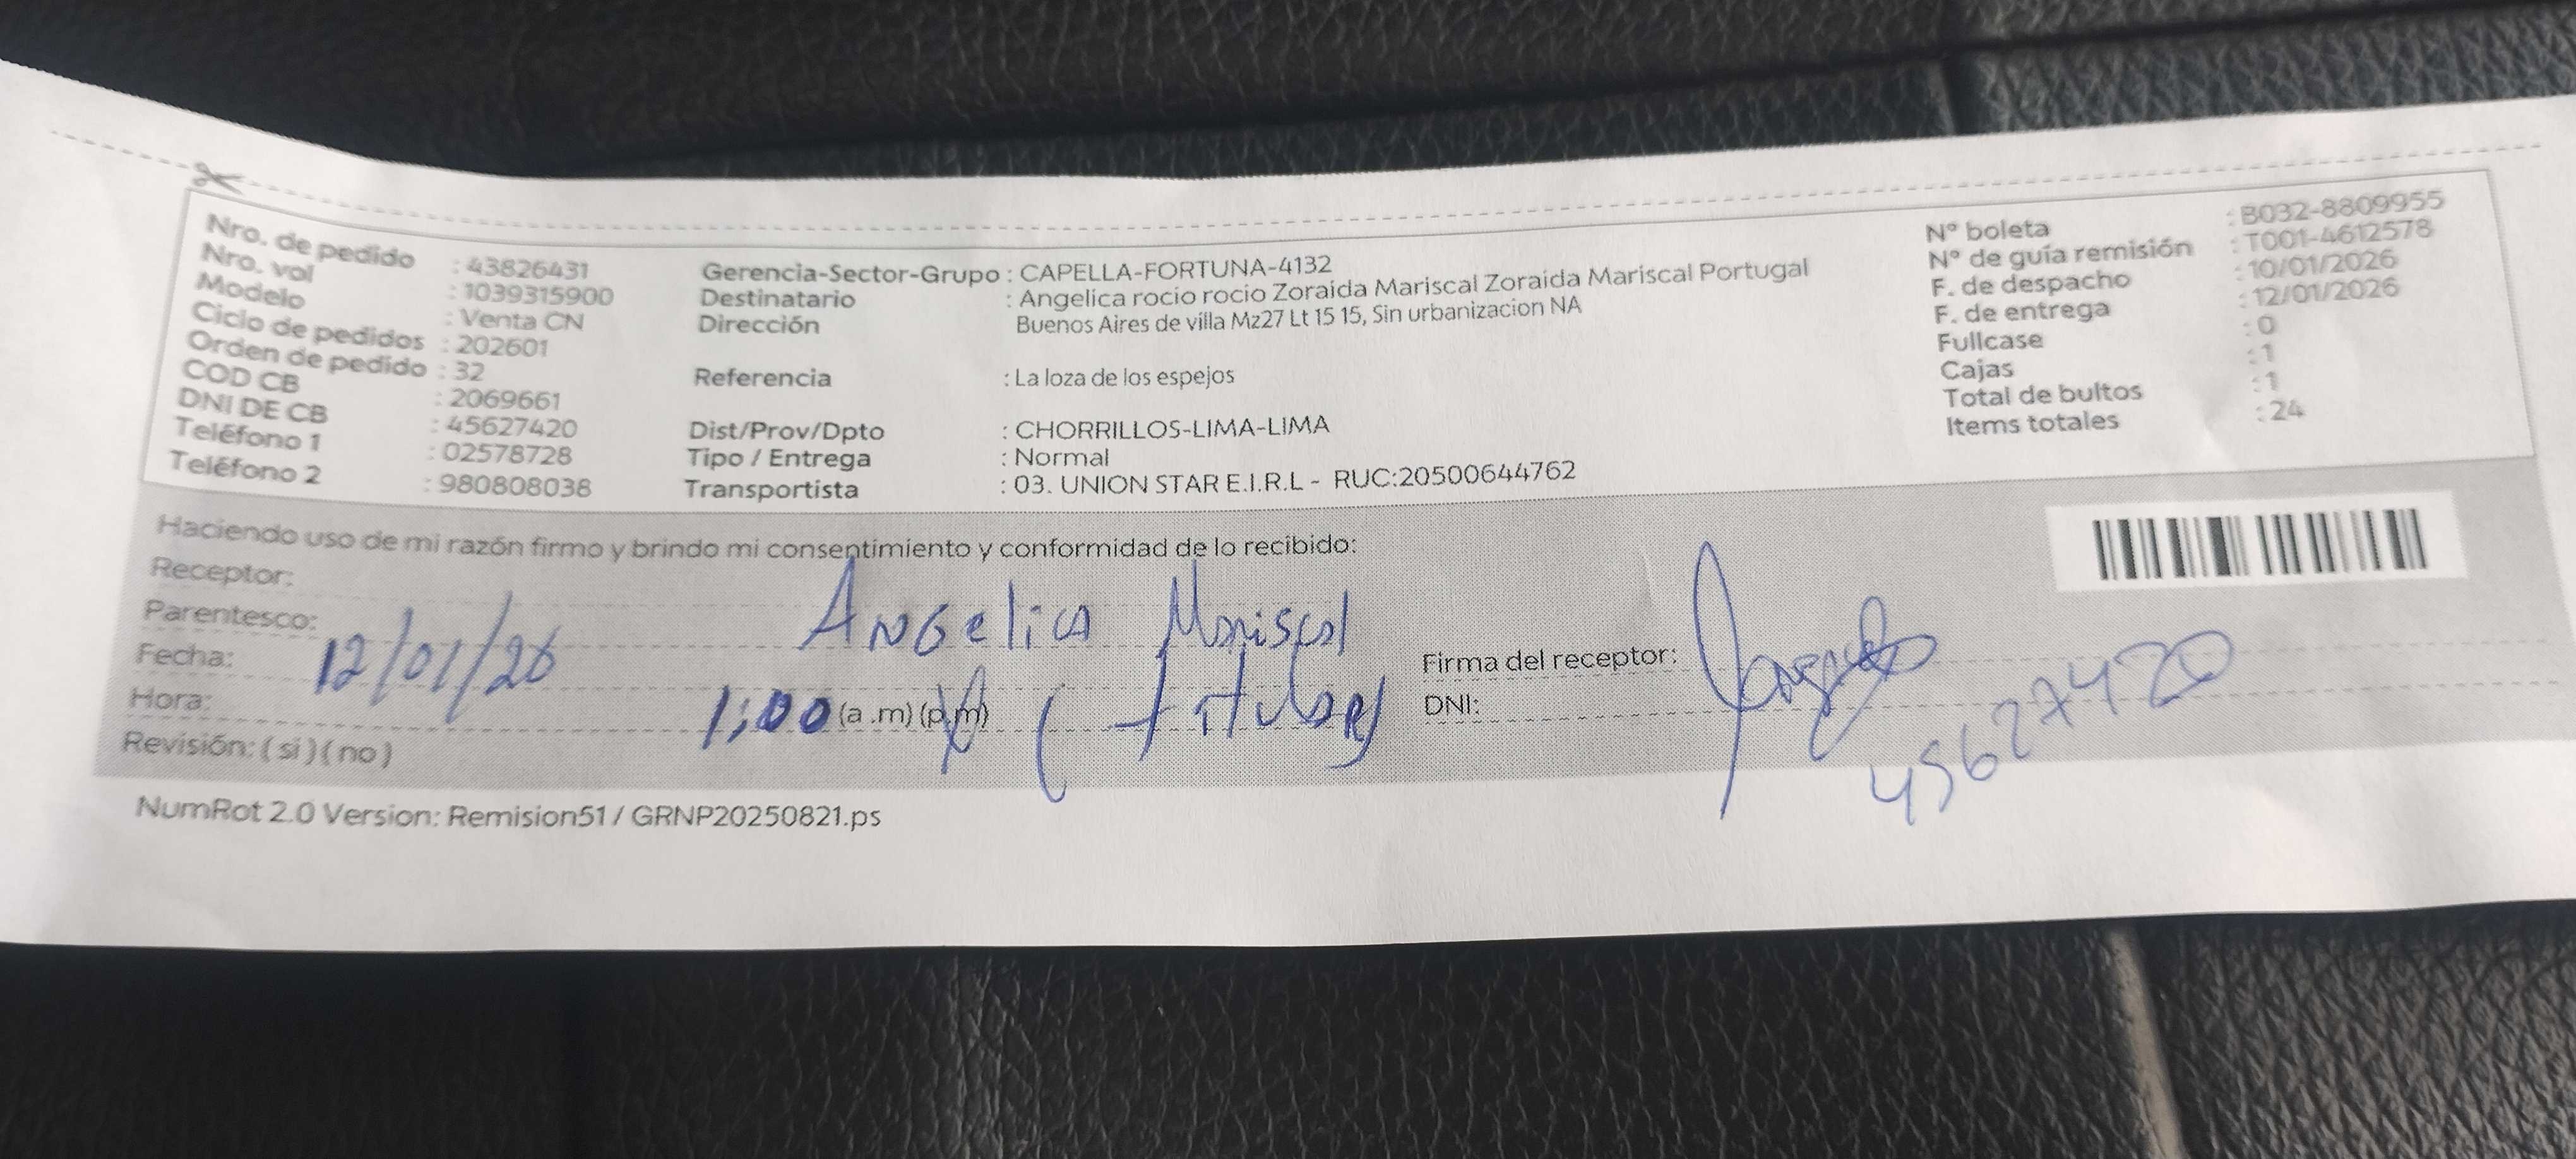 Nro. de pedido : 43826431
Nro. vol : 1039315900
Modelo : Venta CN
Ciclo de pedidos : 202601
Orden de pedido : 32
COD CB : 2069661
DNI DE CB : 45627420
Teléfono 1 : 02578728
Teléfono 2 : 980808038
Gerencia-Sector-Grupo : CAPELLA-FORTUNA-4132
Destinatario : Angelica rocio rocio Zoraida Mariscal Zoraida Mariscal Portugal
Dirección Buenos Aires de villa Mz27 Lt 15 15, Sin urbanizacion NA
Referencia : La loza de los espejos
Dist/Prov/Dpto : CHORRILLOS-LIMA-LIMA
Tipo / Entrega : Normal
Transportista : 03. UNION STAR E.I.R.L - RUC:20500644762
N° boleta : B032-8809955
N° de guía remisión : T001-4612578
F. de despacho : 10/01/2026
F. de entrega : 12/01/2026
Fullcase : 0
Cajas : 1
Total de bultos : 1
Items totales : 24
Haciendo uso de mi razón firmo y brindo mi consentimiento y conformidad de lo recibido:
Receptor: Angelica Mariscal
Parentesco: (titular)
Fecha: 12/01/26
Hora: 1:00 (a .m) (p.m)
Revisión: ( si ) ( no )
Firma del receptor:
DNI: 45627420
NumRot 2.0 Version: Remision51 / GRNP20250821.ps